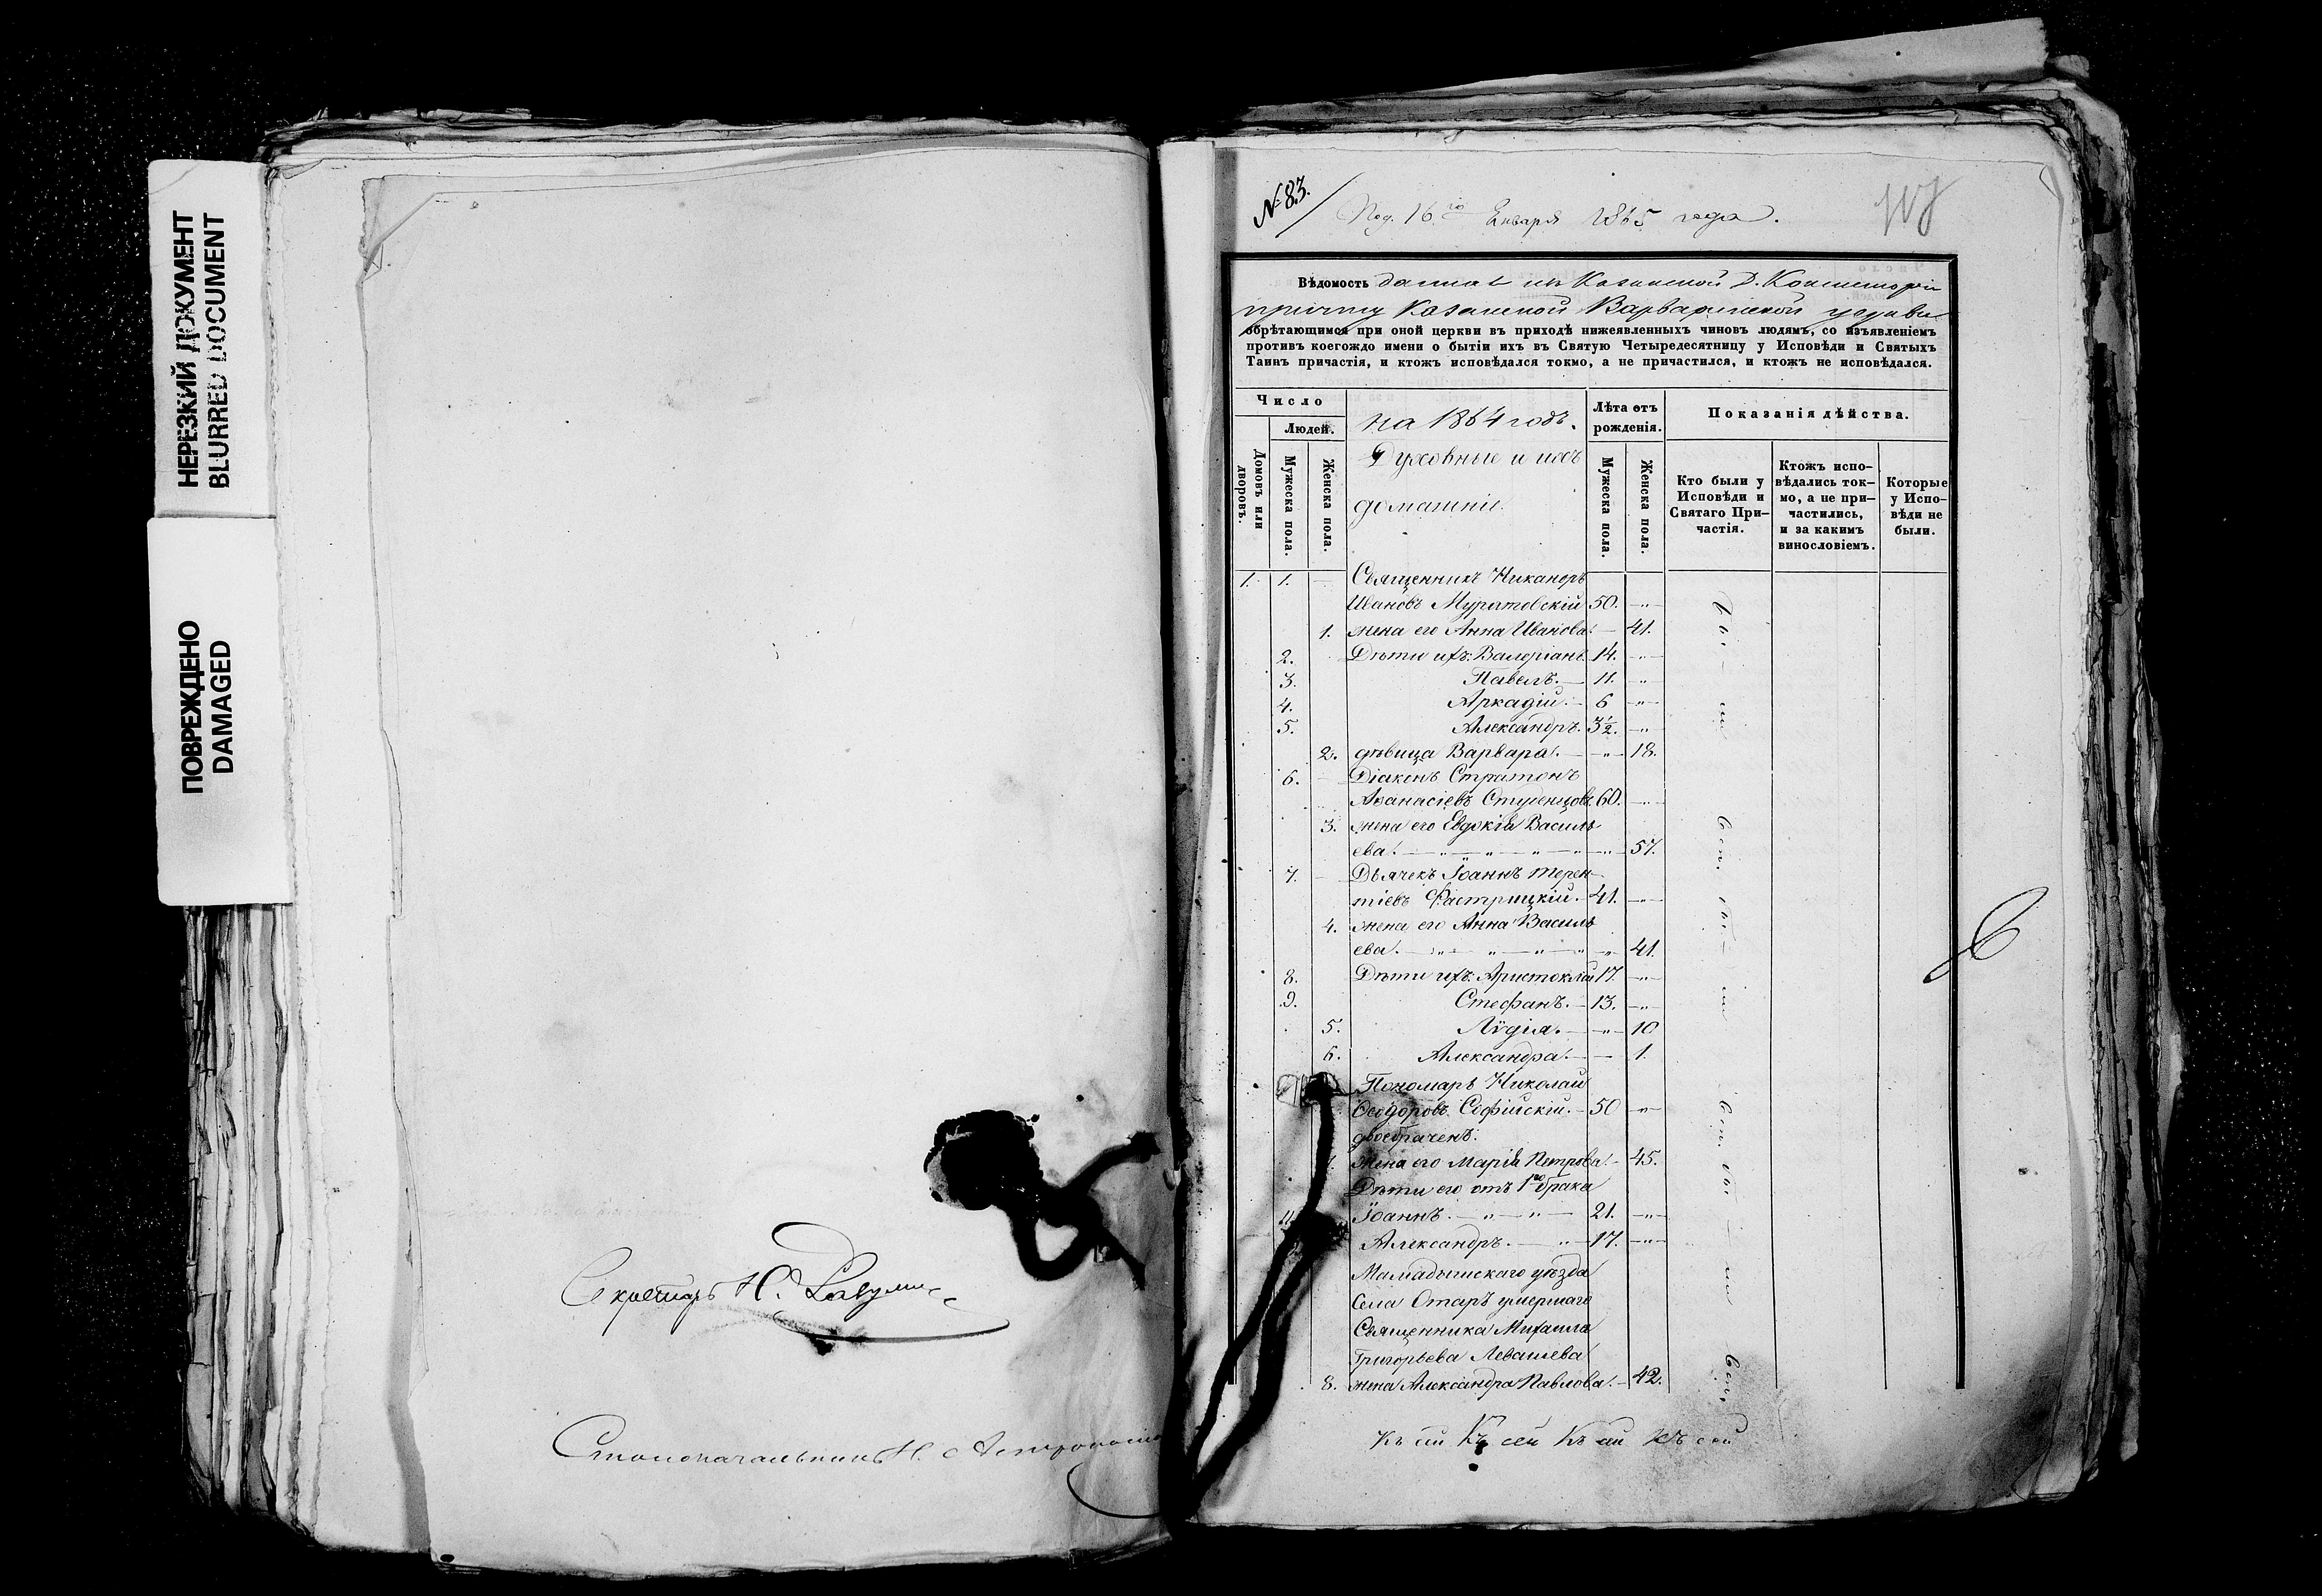 НЕРЕЗКИЙ ДОКУМЕНТ
BLURRED DOCUMENT
ПОВРЕЖДЕНО
DAMAGED
Секретарь Н.
Столоначальникъ Н.
№ 83.
Под. 16го Января 1865 года.
Вѣдомость данная изъ Казанской Д. Консисторіи
причту Казанской Варваринской церкви
обрѣтающимся при оной церкви въ приходѣ нижеявленныхъ чиновъ людямъ, со изъявленіемъ
противъ коегождо имени о бытіи ихъ въ Святую Четыредесятницу у Исповѣди и Святыхъ
Таинъ причастія, и ктожъ исповѣдался токмо, а не причастился, и ктожъ не исповѣдался.
Число
Людей.
Домовъ или дворовъ.
Мужеска пола.
Женска пола.
на 1864 годъ.
Духовные и ихъ
домашніе.
Лѣта отъ рожденія.
Мужеска пола.
Женска пола.
Показанія дѣйства.
Кто были у Исповѣди и Святаго При-частія.
Ктожъ испо-вѣдались ток-мо, а не при-частились, и за какимъ винословіемъ.
Которые у Испо-вѣди не были.
1. 1. Священникъ Никаноръ
Ивановъ Муратовскій 50.
1. жена его Анна Иванова. 41.
2. Дѣти ихъ: Валеріанъ 14.
3. Павелъ. 11.
4. Аркадій. 6
5. Александръ. 3½.
2. дѣвица Варвара. 18.
6. Діаконъ Стратонъ
Аѳанасіевъ Студенцовъ. 60.
3. жена его Евдокія Василь-
ева. 57.
7. Дьячекъ Іоаннъ Терен-
тіевъ Фастрицкій. 41.
4. жена его Анна Василь
ева. 41.
8. Дѣти ихъ: Аристоклій 17.
9. Стефанъ. 13.
5. Лидія. 10
6. Александра. 1.
Пономарь Николай
Ѳеодоровъ Софійскій. 50
двоебраченъ.
7. жена его Марія Петрова. 45.
Дѣти его отъ 1го брака
11. Іоаннъ. 21.
Александръ. 17.
Мамадышскаго уѣзда
Села Отаръ умершаго
Священника Михаила
Григорьева Левашева
8. жена Александра Павлова. 42.